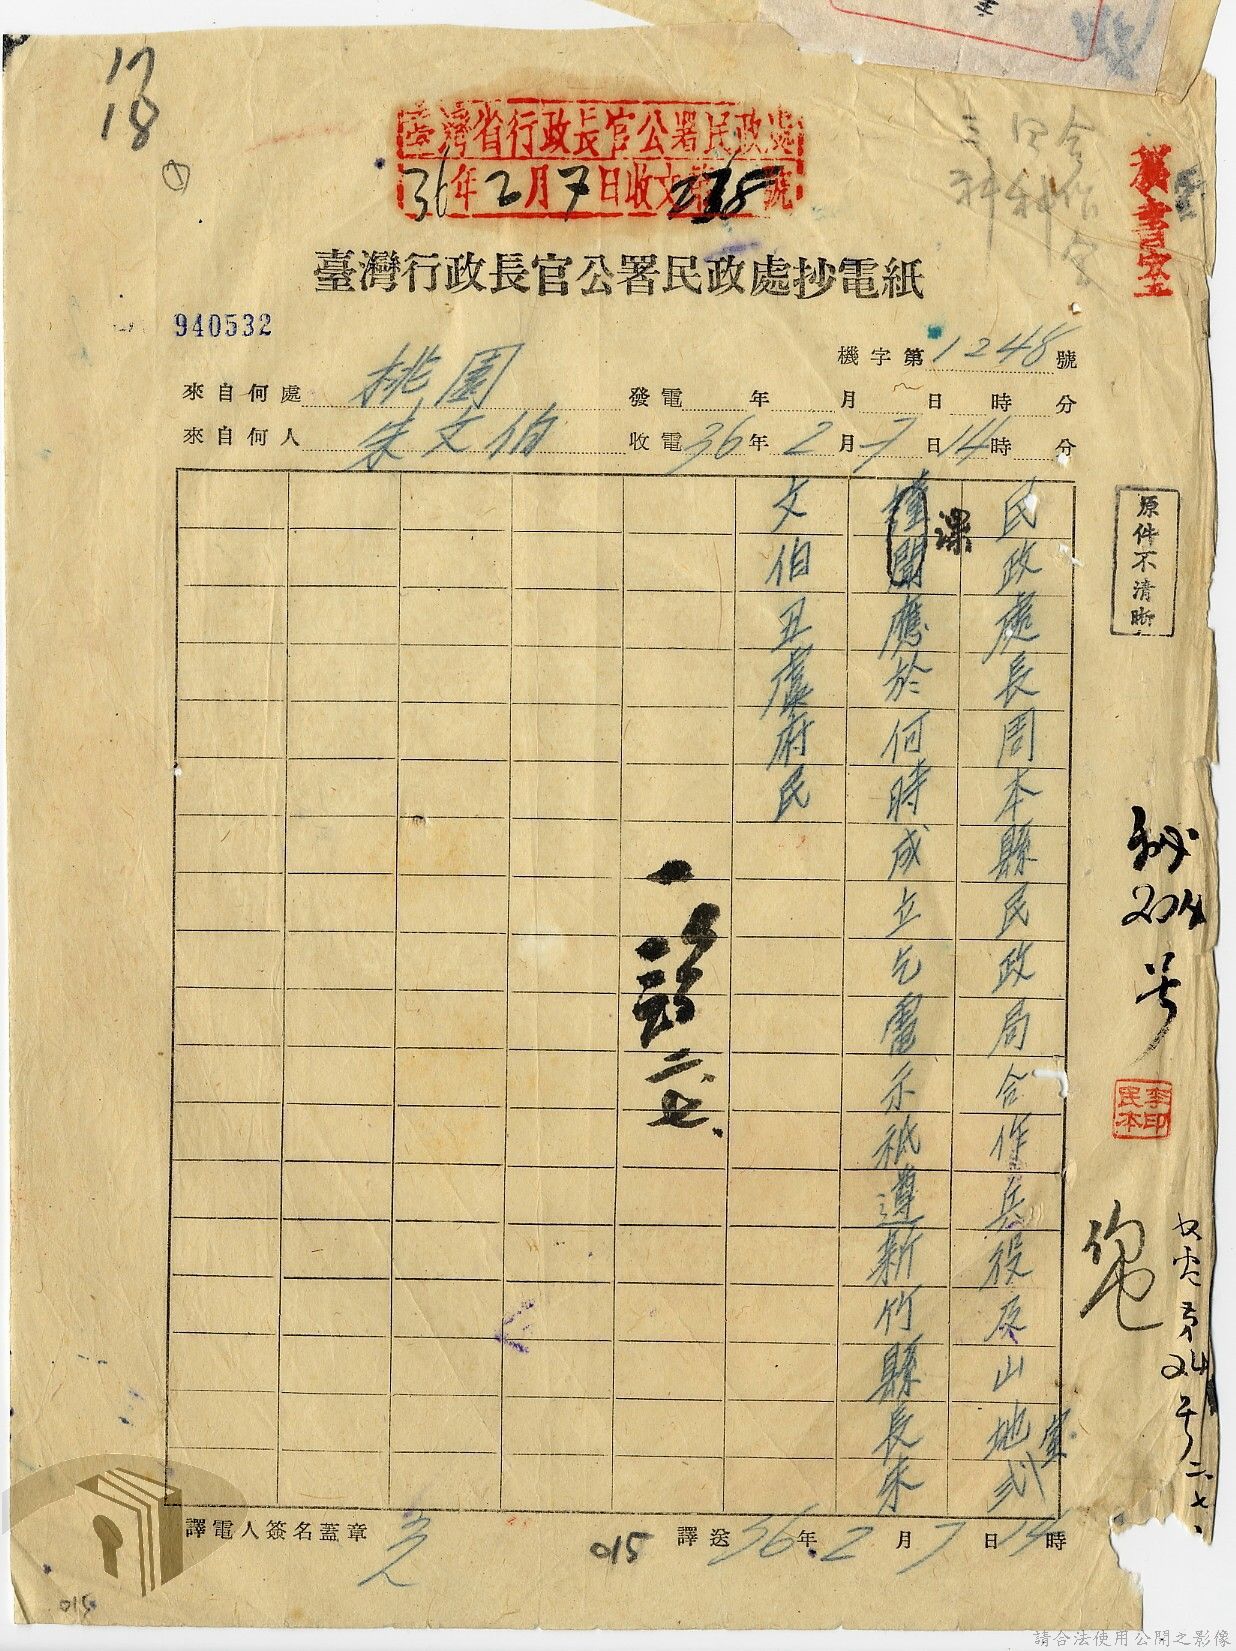 17
18
臺灣省行政長官公署民政處
36年2月7日收文第238號
三科
四科
合作
秘書室
臺灣行政長官公署民政處抄電紙
940532
機字第1248號
來自何處 桃園 發電 年 月 日 時 分
來自何人 朱文伯 收電36年2月7日14時 分
民政處長周本縣民政局合作兵役及山地貳
室
課
應於何時成立乞電示祇遵新竹縣長朱
文伯丑虞府民
原件不清晰
二.七.
號
李民本印
二.七.
譯電人簽名蓋章
015
譯送36年2月7日14時
015
請合法使用公開之影像